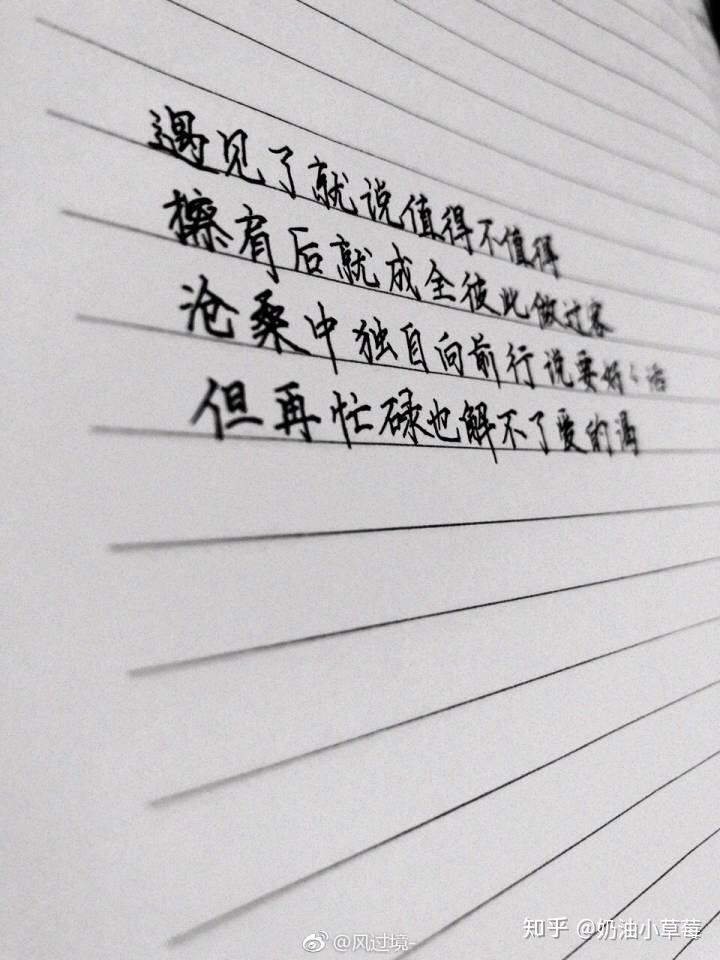 遇见了就说值得不值得
擦肩后就成全彼此做过客
沧桑中独自向前行说要好好活
但再忙碌也解不了爱的渴
知乎 @奶油小草莓
@风过境-